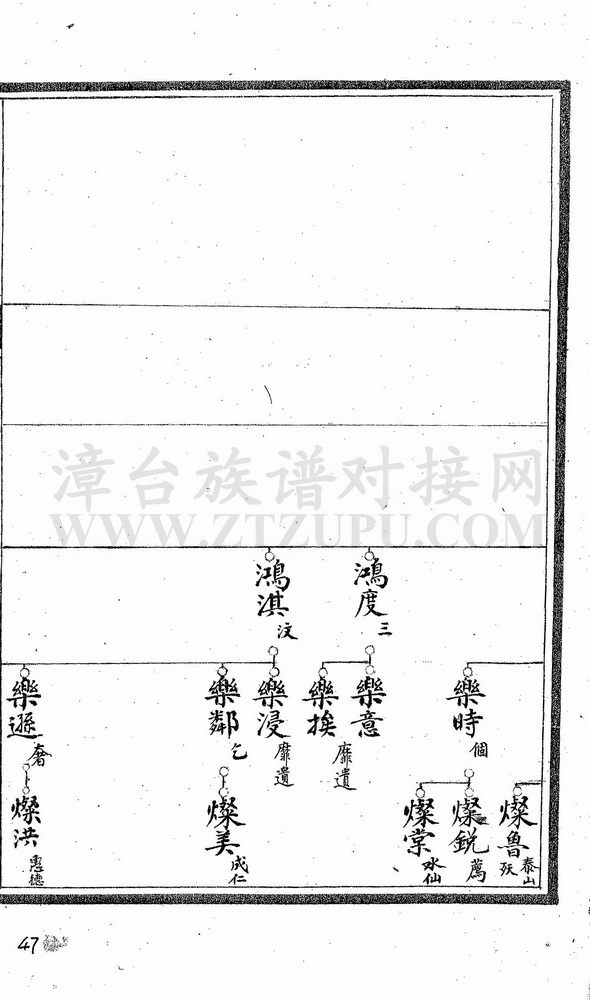 漳台族谱对接网
WWW.ZTZUPU.COM
鴻度 三
鴻淇 汶
樂時 個
樂意
樂挨 靡遺
樂浸 靡遺
樂鄰 乞
樂遜 奢
燦魯 泰山 歿
燦銳 薦
燦棠 水仙
燦美 成仁
燦洪 惠德
47